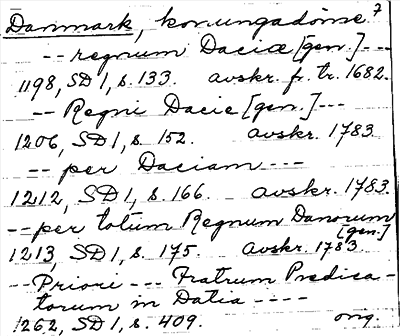 Danmark, konungadöme? 
-- regnum Daciæ [gen.] ---
1198, SD 1, s. 133. avskr. fr. tr. 1682.
-- Regni Dacie [gen.] ---
1206, SD 1, s. 152. avskr. 1783
-- per Daciam ---
1212, SD 1, s. 166. avskr. 1783.
-- per totum Regnum Danorum [gen.]
1213, SD 1, s. 175. avskr. 1783
-- Priori --- Fratrum Predica-
torum in Datia ----
1262, SD 1, s. 409. orig.